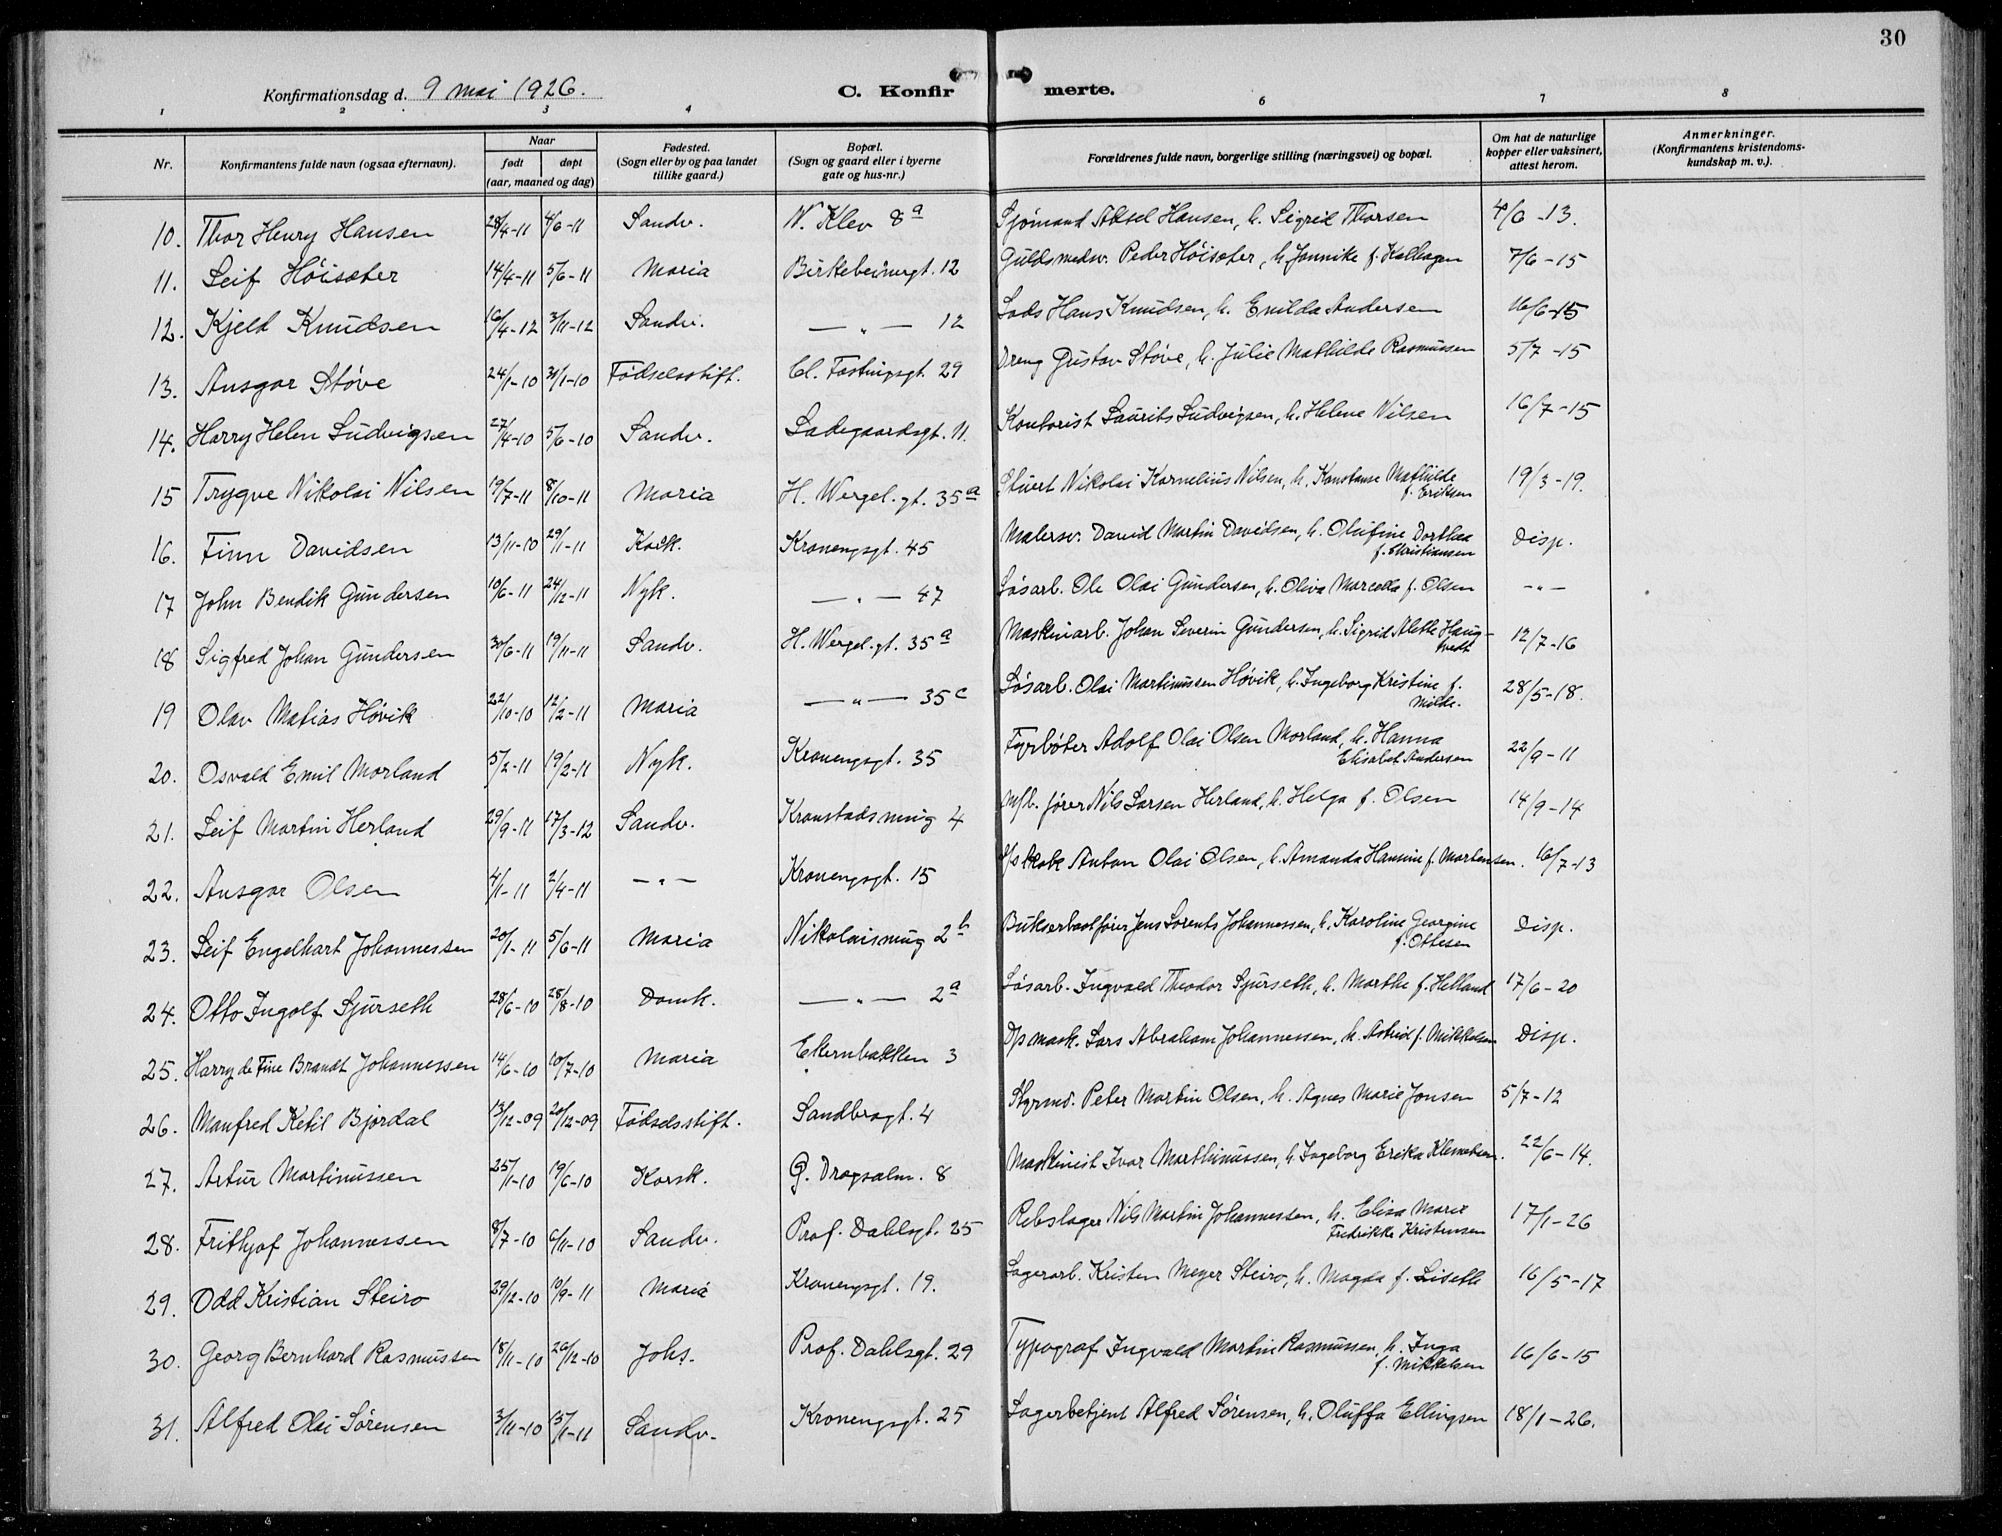 30
Konfirmationsdag d. 9 mai 1926.
C. Konfirmerte.
1 2 3 4 6 7 8
Nr. Konfirmantens fulde navn (ogsaa efternavn). Naar født døpt (aar, maaned og dag) Fødested. (Sogn eller by og paa landet tillike gaard.) Bopæl. (Sogn og gaard eller i byerne gate og hus-nr.) Forældrenes fulde navn, borgerlige stilling (næringsvei) og bopæl. Om hat de naturlige kopper eller vaksinert, attest herom. Anmerkninger. (Konfirmantens kristendomskundskap m. v.).
10. Thor Henry Hansen 28/4-11 4/6-11 Sandv. N. Klev 8a Sjömand Aksel Hansen, h. Sigrid Thorsen 4/6-13.
11. Leif Höisæter 14/4-11 5/6-11 Maria Birkebeinergt. 12 Guldsmedsv. Peder Höisæter, h. Jannike f. Kalhagen 7/6-15
12. Kjeld Knudsen 16/4-12 3/11-12 Sandv. — " — 12 Lods Hans Knudsen, h. Emilda Andersen 16/6-15
13. Ansgar Støve 24/1-10 31/1-10 Fødselsstift. Cl. Fastingsgt. 29 Dreng Gustav Støve, h. Julie Mathilde Rasmussen 5/7-15
14. Harry Helen Ludvigsen 27/4-10 5/6-10 Sandv. Ladegaardsgt. 11. Kontorist Laurits Ludvigsen, h. Helene Nilsen 16/7-15
15 Trygve Nikolai Nilsen 19/7-11 8/10-11 Maria H. Wergel.gt. 35a Stuert Nikolai Kornelius Nilsen, h. Konstanse Mathilde f. Eriksen 19/3-19.
16. Finn Davidsen 13/11-10 29/1-11 Korsk. Kronengsgt. 45 Malersv. David Martin Davidsen, h. Olufine Dorthea f. Christiansen Disp.
17 John Bendik Gundersen 10/6-11 24/12-11 Nyk. — " — 47 Løsarb. Ole Olai Gundersen, h. Oliva Marcella f. Olsen — " —
18 Sigfred Johan Gundersen 30/6-11 19/11-11 Sandv. H. Wergel.gt. 35a Maskinarb. Johan Severin Gundersen, h. Sigrid Alette Haugtvedt 12/7-16
19 Olav Matias Høvik 22/10-10 12/2-11 Maria — " — 35c Løsarb. Olai Martinussen Høvik, h. Ingeborg Kristine f. Milde. 28/5-18.
20. Osvald Emil Morland 5/2-11 19/2-11 Nyk. Kronengsgt. 35 Fyrbøter Adolf Olai Olsen Morland, h. Hanna Elisabet Andersen 22/9-11
21. Leif Martin Herland 29/9-11 17/3-12 Sandv. Kronstadsmug 4 M/b. fører Nils Larsen Herland, h. Helga f. Olsen 14/9-14
22. Ansgar Olsen 4/1-11 2/4-11 — " — Kronengsgt. 15 Anton Olai Olsen, h. Amanda Hansine f. Martensen. 16/7-13
23. Leif Engelhart Johannessen 20/1-11 5/6-11 Maria Nikolaismug 2b Bukserbaatfører Jens Lorents Johannessen, h. Karoline Georgine f. Ottesen Disp.
24. Otto Ingolf Sjurseth 28/6-10 28/8-10 Domk. — " — 2a Løsarb. Ingvald Theodor Sjurseth, h. Marthe f. Helland 17/6-20
25. Harry de Fine Brandt Johannessen 14/6-10 10/7-10 Maria Ekernbakken 3 D/s mask. Lars Abraham Johannessen, h. Astrid f. Mikkelsen Disp.
26. Manfred Ketil Bjordal 13/12-09 20/12-09 Fødselsstift. Sandbrogt. 4 Styrmd. Peter Martin Olsen, h. Agnes Marie Jonsen 5/7-12
27. Artur Martinussen 25/1-10 19/6-10 Korsk. G. Dragsalm. 8 Maskinist Ivar Marthinussen, h. Ingeborg Erika Klemetsen. 22/6-14.
28. Frithjof Johannessen 8/7-10 6/11-10 Sandv. Prof. Dahlsgt. 25 Rebslager Nils Martin Johannessen, h. Elisa Marie Fredrikke Kristensen 17/1-26
29. Odd Kristian Steiro 29/12-10 10/9-11 Maria Kronengsgt. 19. Lagerarb. Kristen Meyer Steiro, h. Magda f. Liseth 16/5-17
30. Georg Bernhard Rasmussen 18/11-10 26/12-10 Johs. Prof. Dahlsgt. 29 Typograf Ingvald Martin Rasmussen, h. Inga f. Mikkelsen 16/6-15
31. Alfred Olai Sørensen 3/11-10 15/1-11 Sandv. Kronengsgt. 25 Lagerbetjent Alfred Sørensen, h. Oluffa Ellingsen 18/1-26.